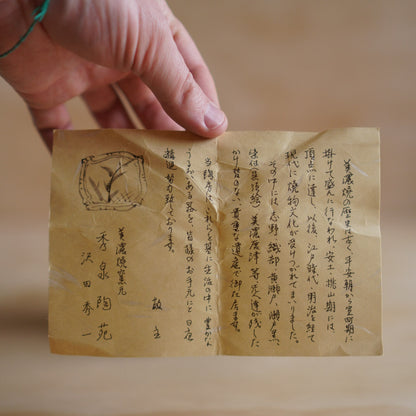 美濃焼の歴史は古く平安朝から室町期に
掛けて盛んに行なわれ、安土、桃山期には
頂点に達し、以後、江戸時代、明治を経て
現代に焼物文化が受けつがれてまいりました。
その中には志野、織部、黄瀬戸、瀬戸黒、
美濃唐津、等先人達が残した
かけ替のない貴重な遺産で御在ます。
当陶房はこれらを基に生活の中に豊かな
うるおいある器を、皆様のお手元にと日夜
努力致しております。
敬白
美濃焼窯元
秀泉陶苑
沢田秀一